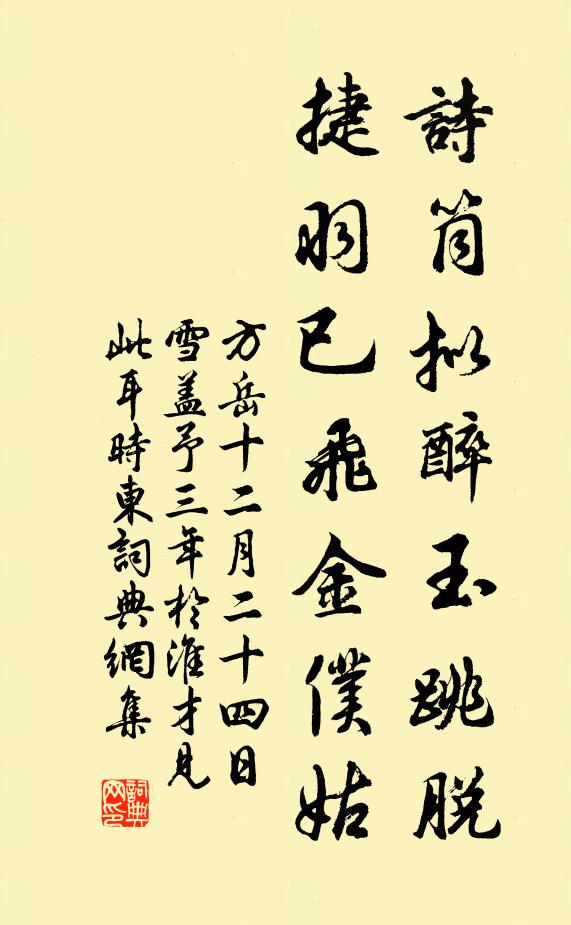 詩筒拟醉玉跳脱
捷羽已飛金僕姑
方岳十二月二十四日
雪盖予三年於淮才見
此耳時東詞典網集
詞典
网印